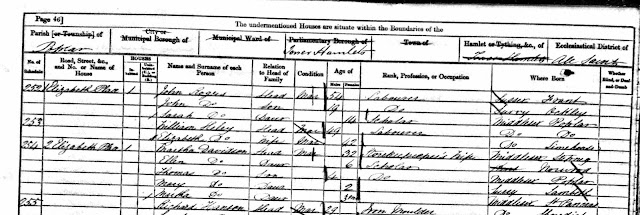 Page 46]
The undermentioned Houses are situate within the Boundaries of the
Parish [or Township] of
Poplar
City or
Municipal Borough of
Municipal Ward of
Parliamentary Borough of
Tower Hamlets
Town of
Hamlet or Tything, &c., of
Ecclesiastical District of
All Saints
No. of Schedule
Road, Street, &c., and No. or Name of House
HOUSES
Name and Surname of each Person
Relation to Head of Family
Condition
Age of
Males
Females
Rank, Profession, or Occupation
Where Born
Whether Blind, or Deaf-and-Dumb
252 1 Elizabeth Place 1 John Rogers Head Mar Labourer Sussex Frant
John Do Son 19 Do Surry Ockley
Sarah Do Daur 14 Scholar Middlesex Poplar
253 William Head Mar 49 Labourer Do Do
Elizabeth Do Wife Mar 42 Do Limehouse
254 2 Elizabeth Place 1 Martha Davidson Head Mar 32 Wife Middlesex Stepney
Ellen Do Daur 6 Scholar Norwood
Thomas Do Son 4 Do Middlesex Poplar
Mary Do Daur 2 Surry Lambeth
Martha Do Daur Middlesex St Pancras
255 Richard Head Mar 29 Iron Moulder